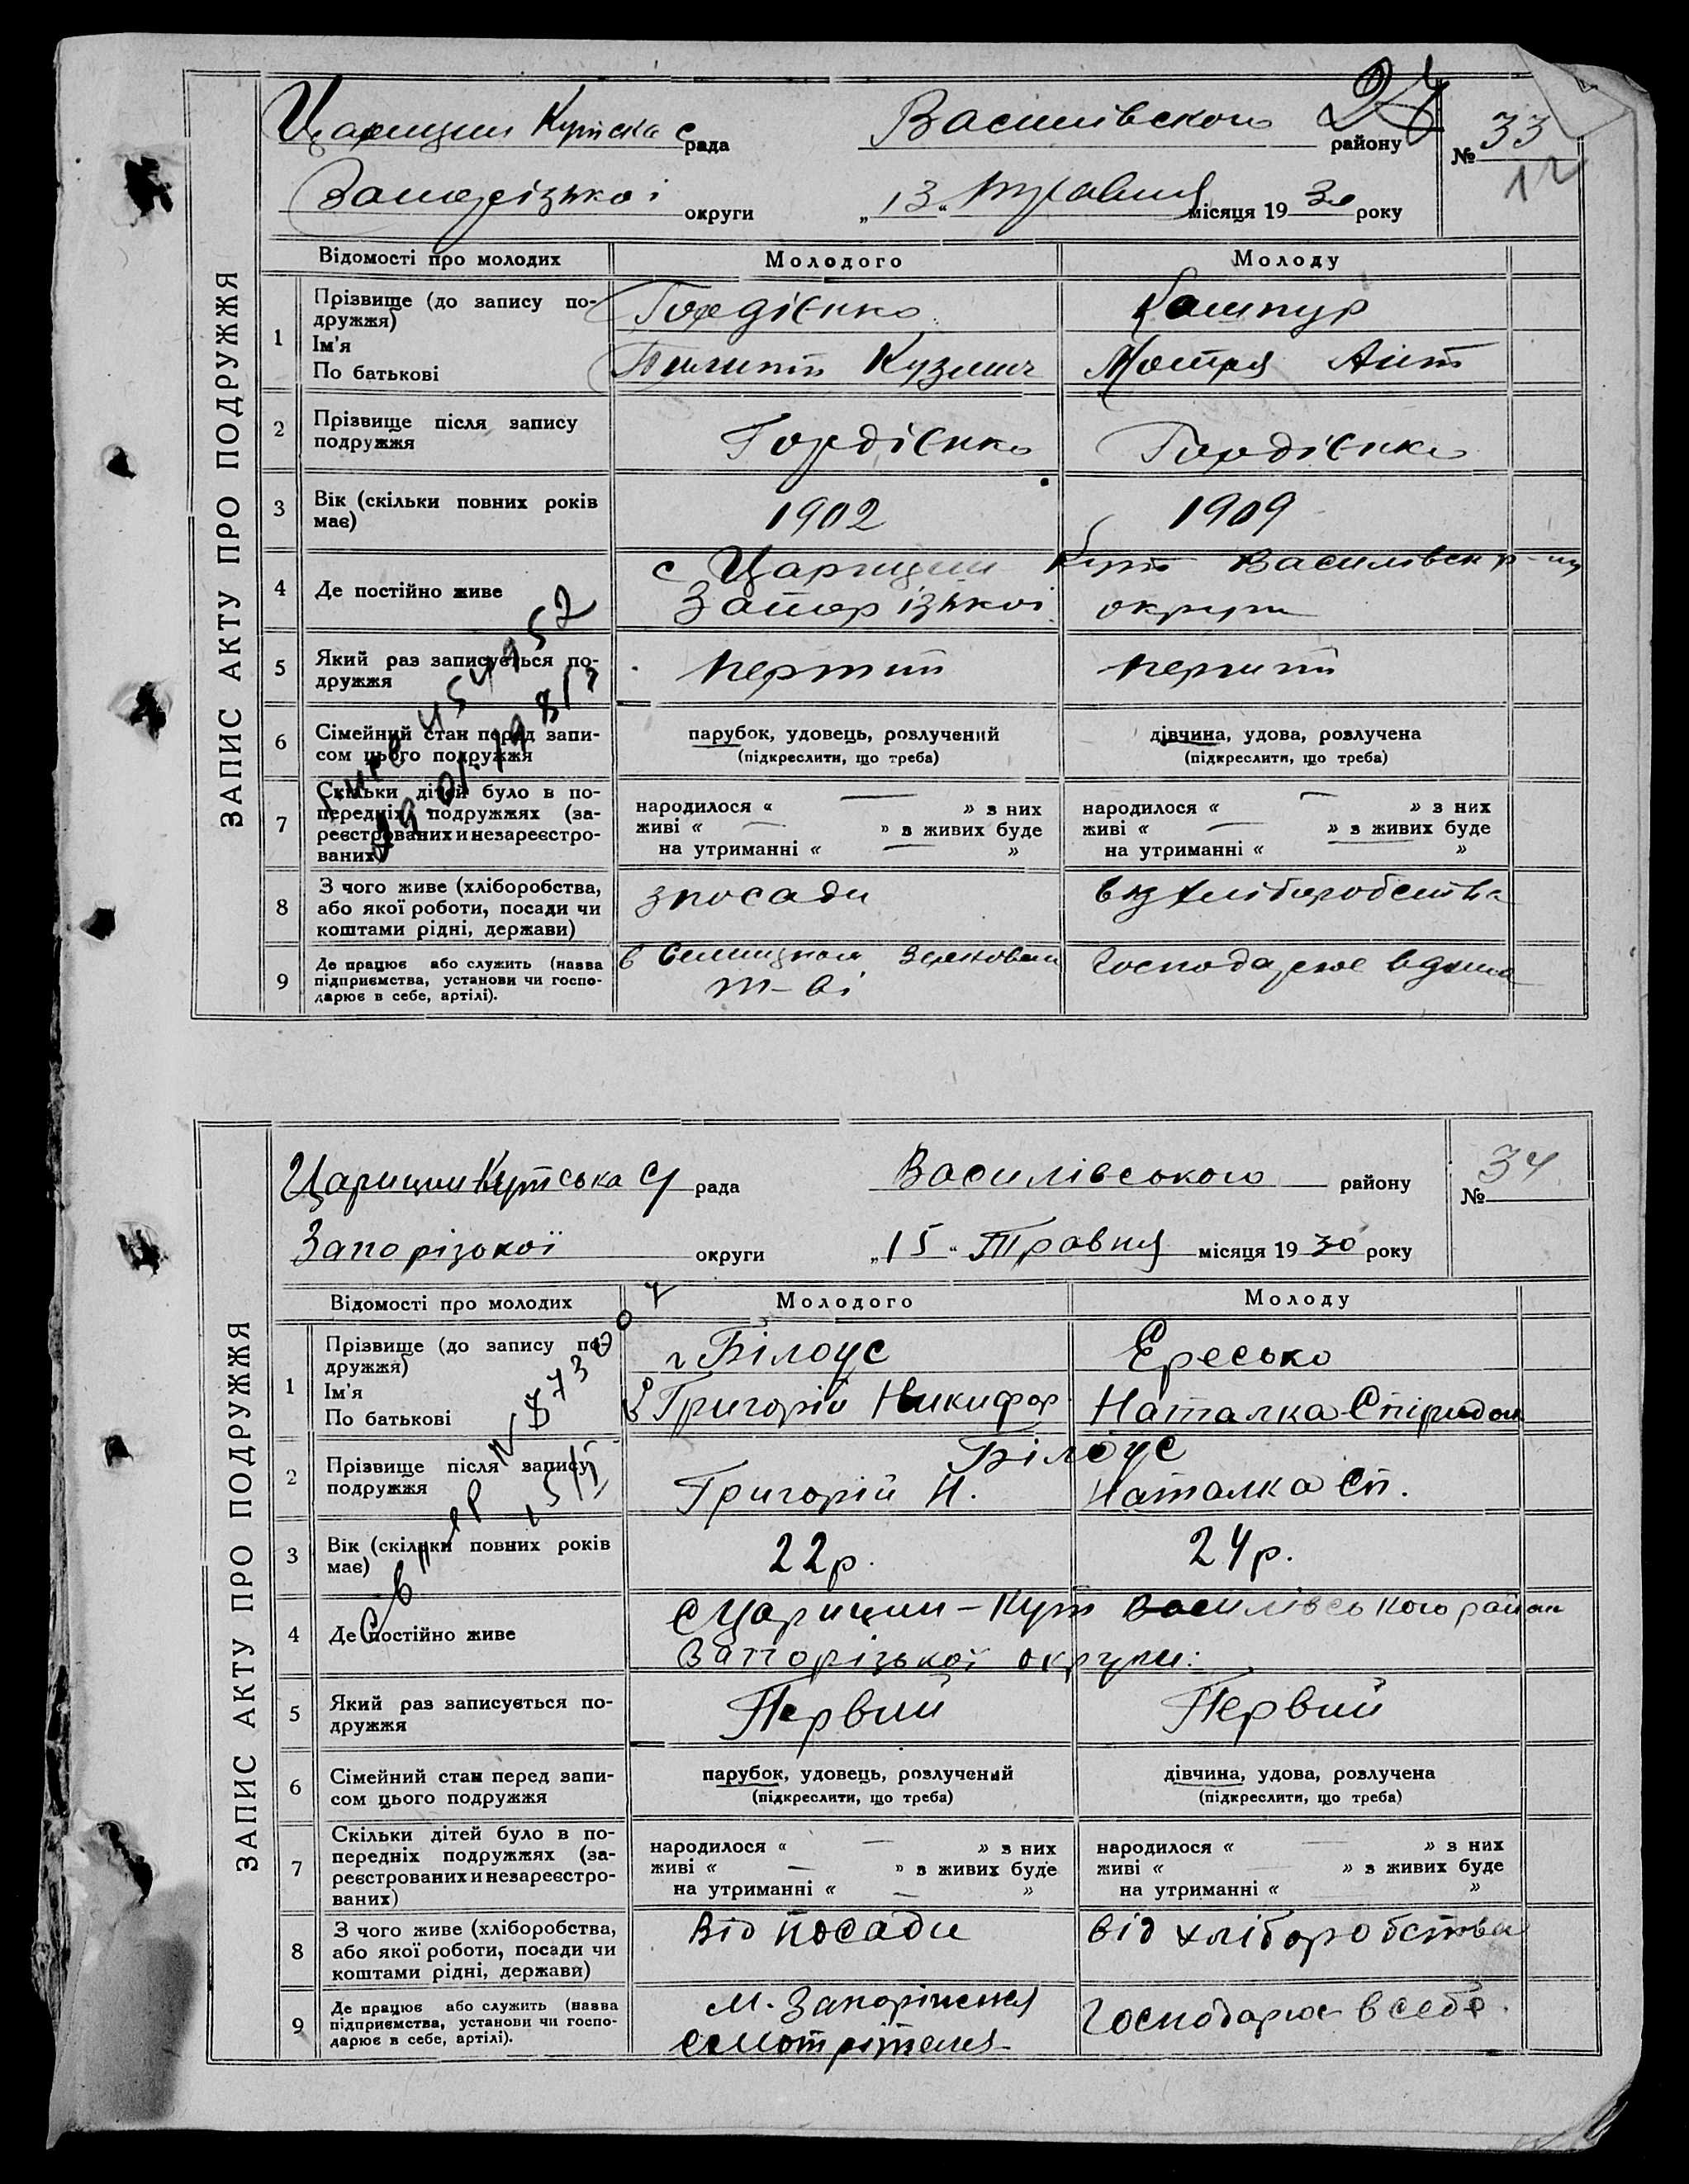 Царицин Кутська с рада Василівского району № 33
24
12
Запорізької округи „13“ травня місяця 1930 року
ЗАПИС АКТУ ПРО ПОДРУЖЖЯ
Відомості про молодих Молодого Молоду
1 Прізвище (до запису по-дружжя) Гордієнко Кашпур
Ім'я
По батькові Пилипп Кузмич Мотря Ант
2 Прізвище після запису подружжя Гордієнко Гордієнко
3 Вік (скільки повних років має) 1902 1909
4 Де постійно живе с Царицин Кут Василівск р-ну
Запорізькоі округи
5 Який раз записується по-дружжя
6 Сімейний стан перед запи-сом цього подружжя парубок, удовець, розлучений дівчина, удова, розлучена
(підкреслити, що треба) (підкреслити, що треба)
7 Скільки дітей було в по-передніх подружжях (за-реєстрованих и незареєстро-ваних)
народилося « — » з них народилося « — » з них
живі « — » з живих буде живі « — » з живих буде
на утриманні « — » на утриманні « — »
8 З чого живе (хліборобства, або якої роботи, посади чи коштами рідні, держави) зпосади від хліборобства
9 Де працює або служить (назва підприємства, установи чи госпо-дарює в себе, артілі). в т-ві Господарює
ЗАПИС АКТУ ПРО ПОДРУЖЖЯ
Царицин Кутська С рада Василівського району № 34
Запорізокої округи „15“ Травня місяця 1930 року
Відомості про молодих Молодого Молоду
1 Прізвище (до запису по-дружжя) Білоус Ересько
Ім'я
По батькові Григорій Никифор Наталка Спіридон
2 Прізвище після запису подружжя Білоус
Григорій Н. Наталка Сп.
3 Вік (скільки повних років має) 22р. 24р.
4 Де постійно живе с Царицин-Кут Василівського район
Запорізької округи.
5 Який раз записується по-дружжя Первий Первий
6 Сімейний стан перед запи-сом цього подружжя парубок, удовець, розлучений дівчина, удова, розлучена
(підкреслити, що треба) (підкреслити, що треба)
7 Скільки дітей було в по-передніх подружжях (за-реєстрованих и незареєстро-ваних)
народилося « — » з них народилося « — » з них
живі « — » з живих буде живі « — » з живих буде
на утриманні « — » на утриманні « »
8 З чого живе (хліборобства, або якої роботи, посади чи коштами рідні, держави) від посади від хліборобства
9 Де працює або служить (назва підприємства, установи чи госпо-дарює в себе, артілі). м. Запоріження Господарює в себе.
смотрітеля